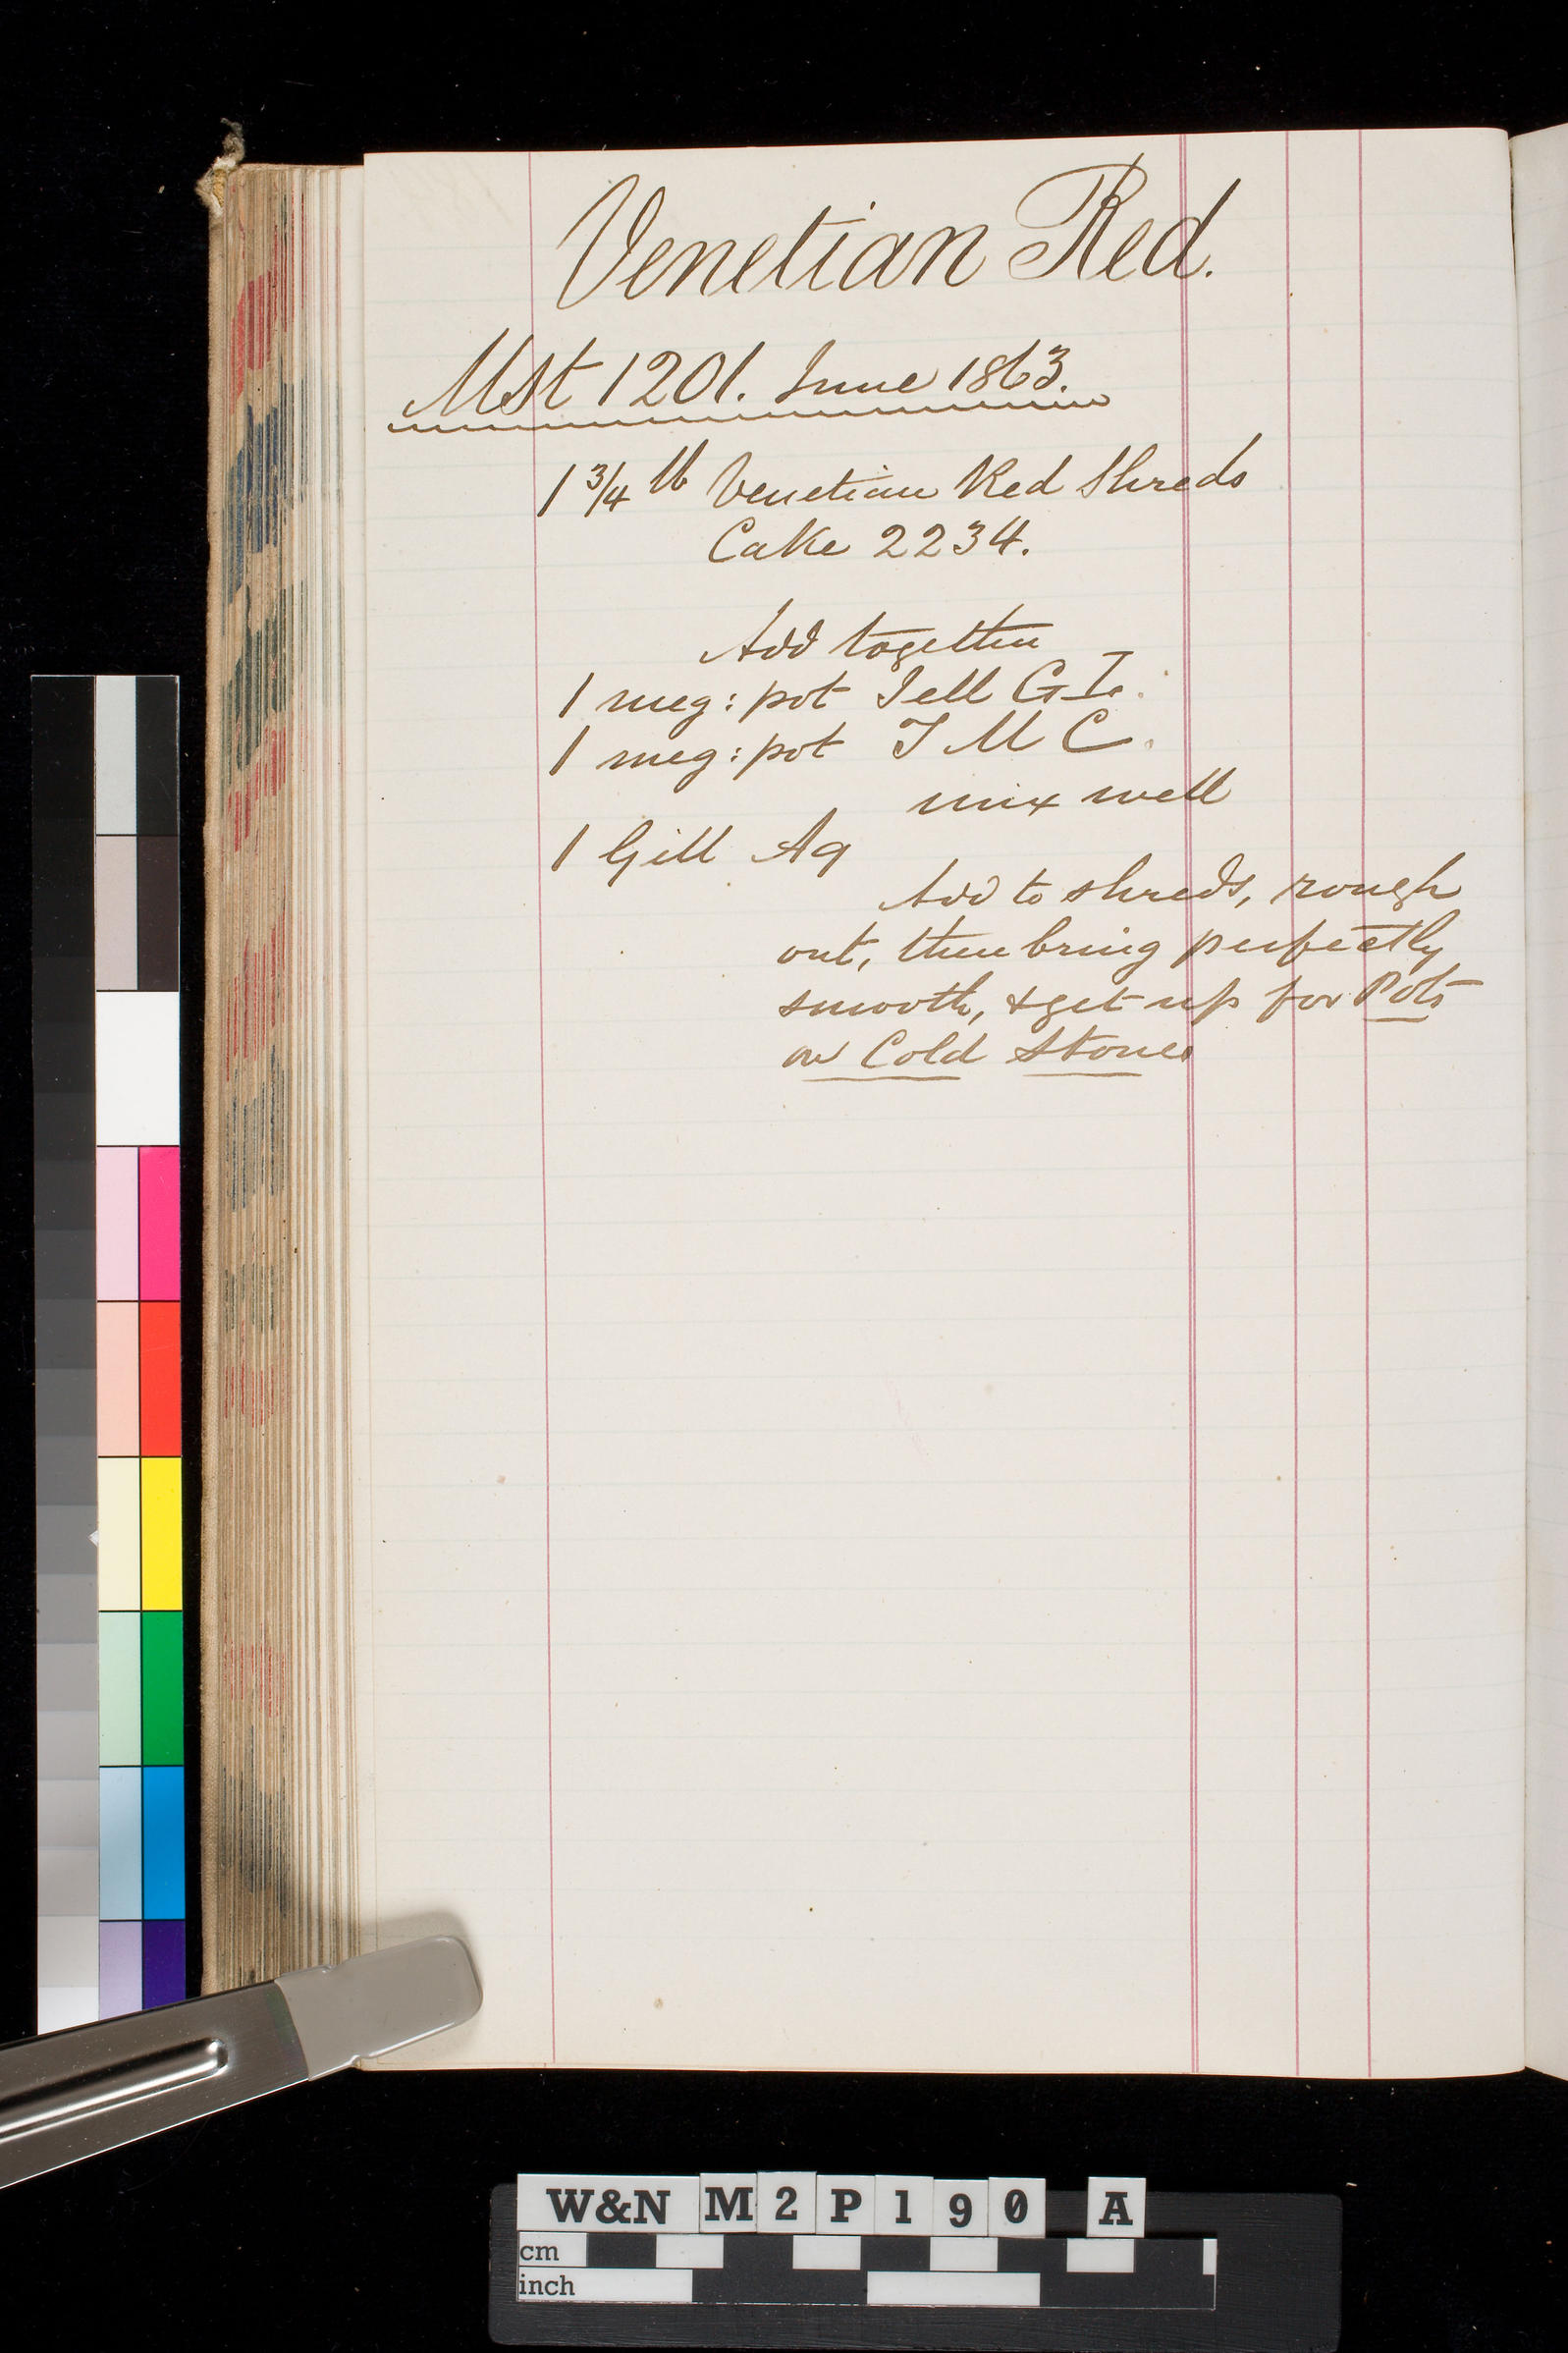 Venetian Red.
Mst 1201. June 1863.
1 3/4 lb Venetian Red Shreds
Cake 2234.
Add together
1 meg: pot Jell G
1 meg: pot J M C.
mix well
1 Gill Aq
Add to shreds, rough
out, then bring perfectly
smooth, & get up for Pots
on Cold Stone
W&N M2P190 A
cm
inch